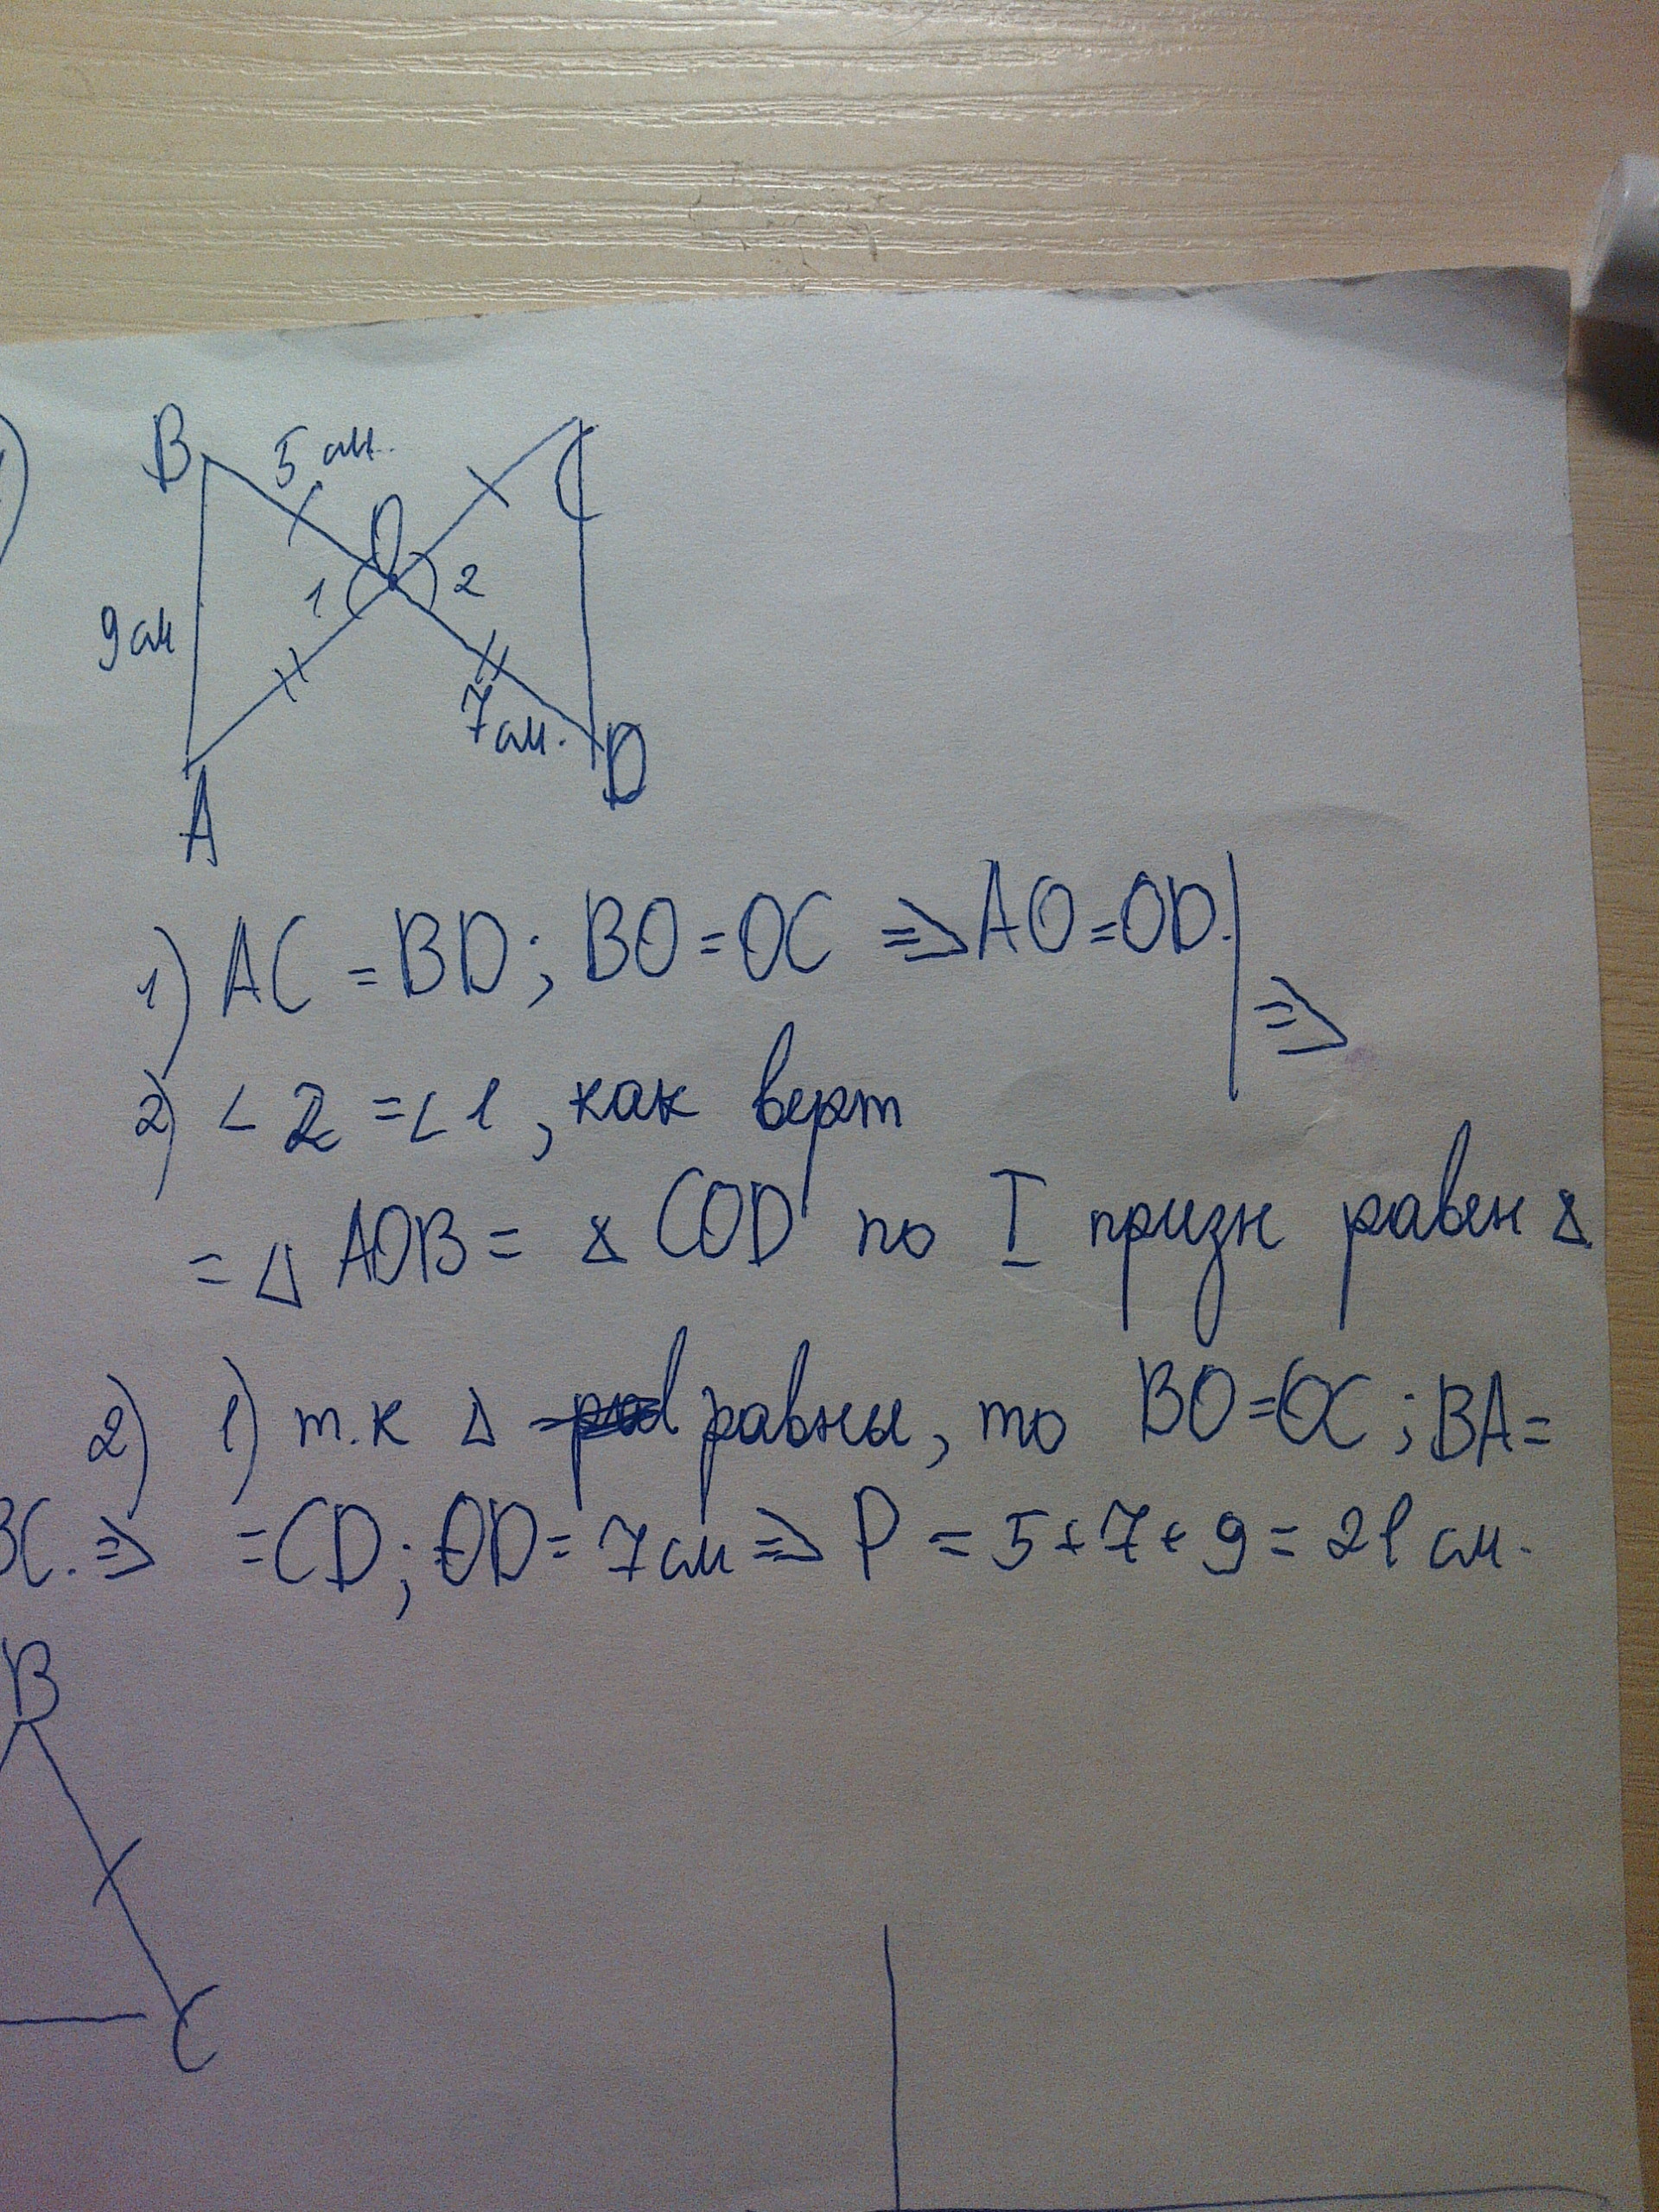 )
B 5 см. C
O
1 2
9 см
7 см.
A D
1) AC = BD; BO = OC => AO = OD. | =>
2) ∠ 2 = ∠ 1, как верт
= △ AOB = △ COD по I призн равен △.
2) 1) т.к △ равны, то BO = OC; BA =
BC. => = CD; OD = 7 см => P = 5 + 7 + 9 = 21 см.
B
C